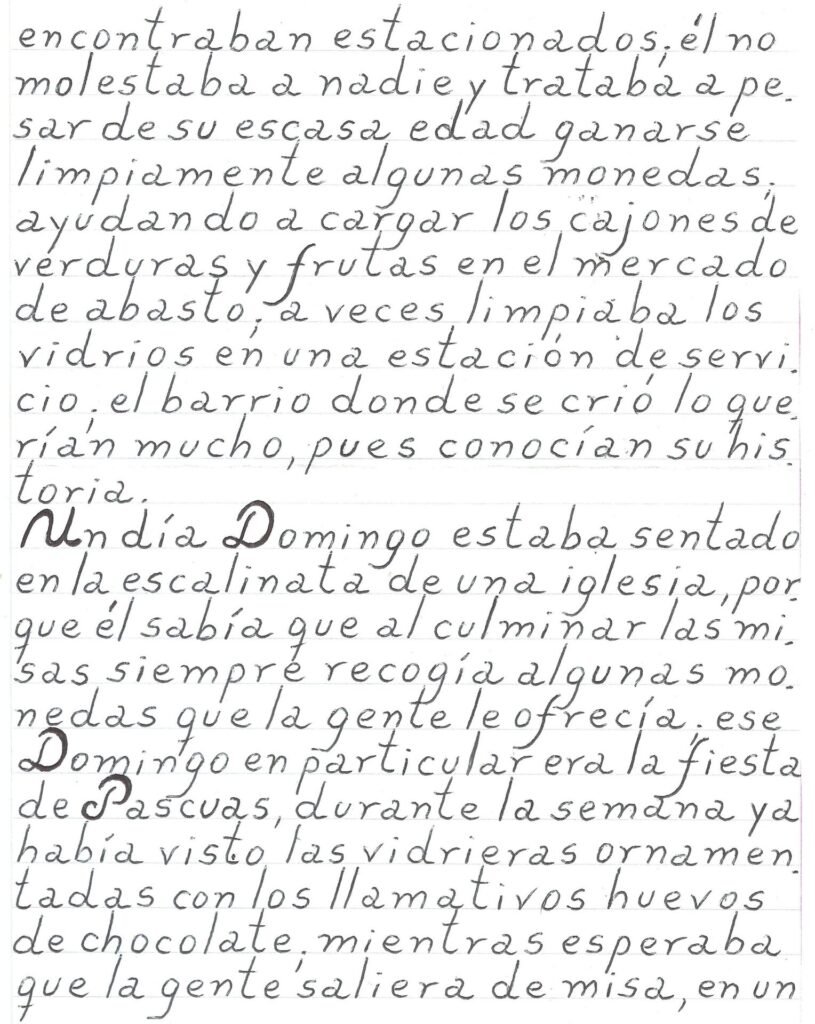 encontraban estacionados; él no
molestaba a nadie y trataba a pe-
sar de su escasa edad ganarse
limpiamente algunas monedas;
ayudando a cargar los cajones de
verduras y frutas en el mercado
de abasto; a veces limpiaba los
vidrios en una estación de servi-
cio; el barrio donde se crió lo que-
rían mucho, pues conocían su his-
toria.
Un día Domingo estaba sentado
en la escalinata de una iglesia, por-
que él sabía que al culminar las mi-
sas siempre recogía algunas mo-
nedas que la gente le ofrecía; ese
Domingo en particular era la fiesta
de Pascuas, durante la semana ya
había visto las vidrieras ornamen-
tadas con los llamativos huevos
de chocolate; mientras esperaba
que la gente saliera de misa, en un